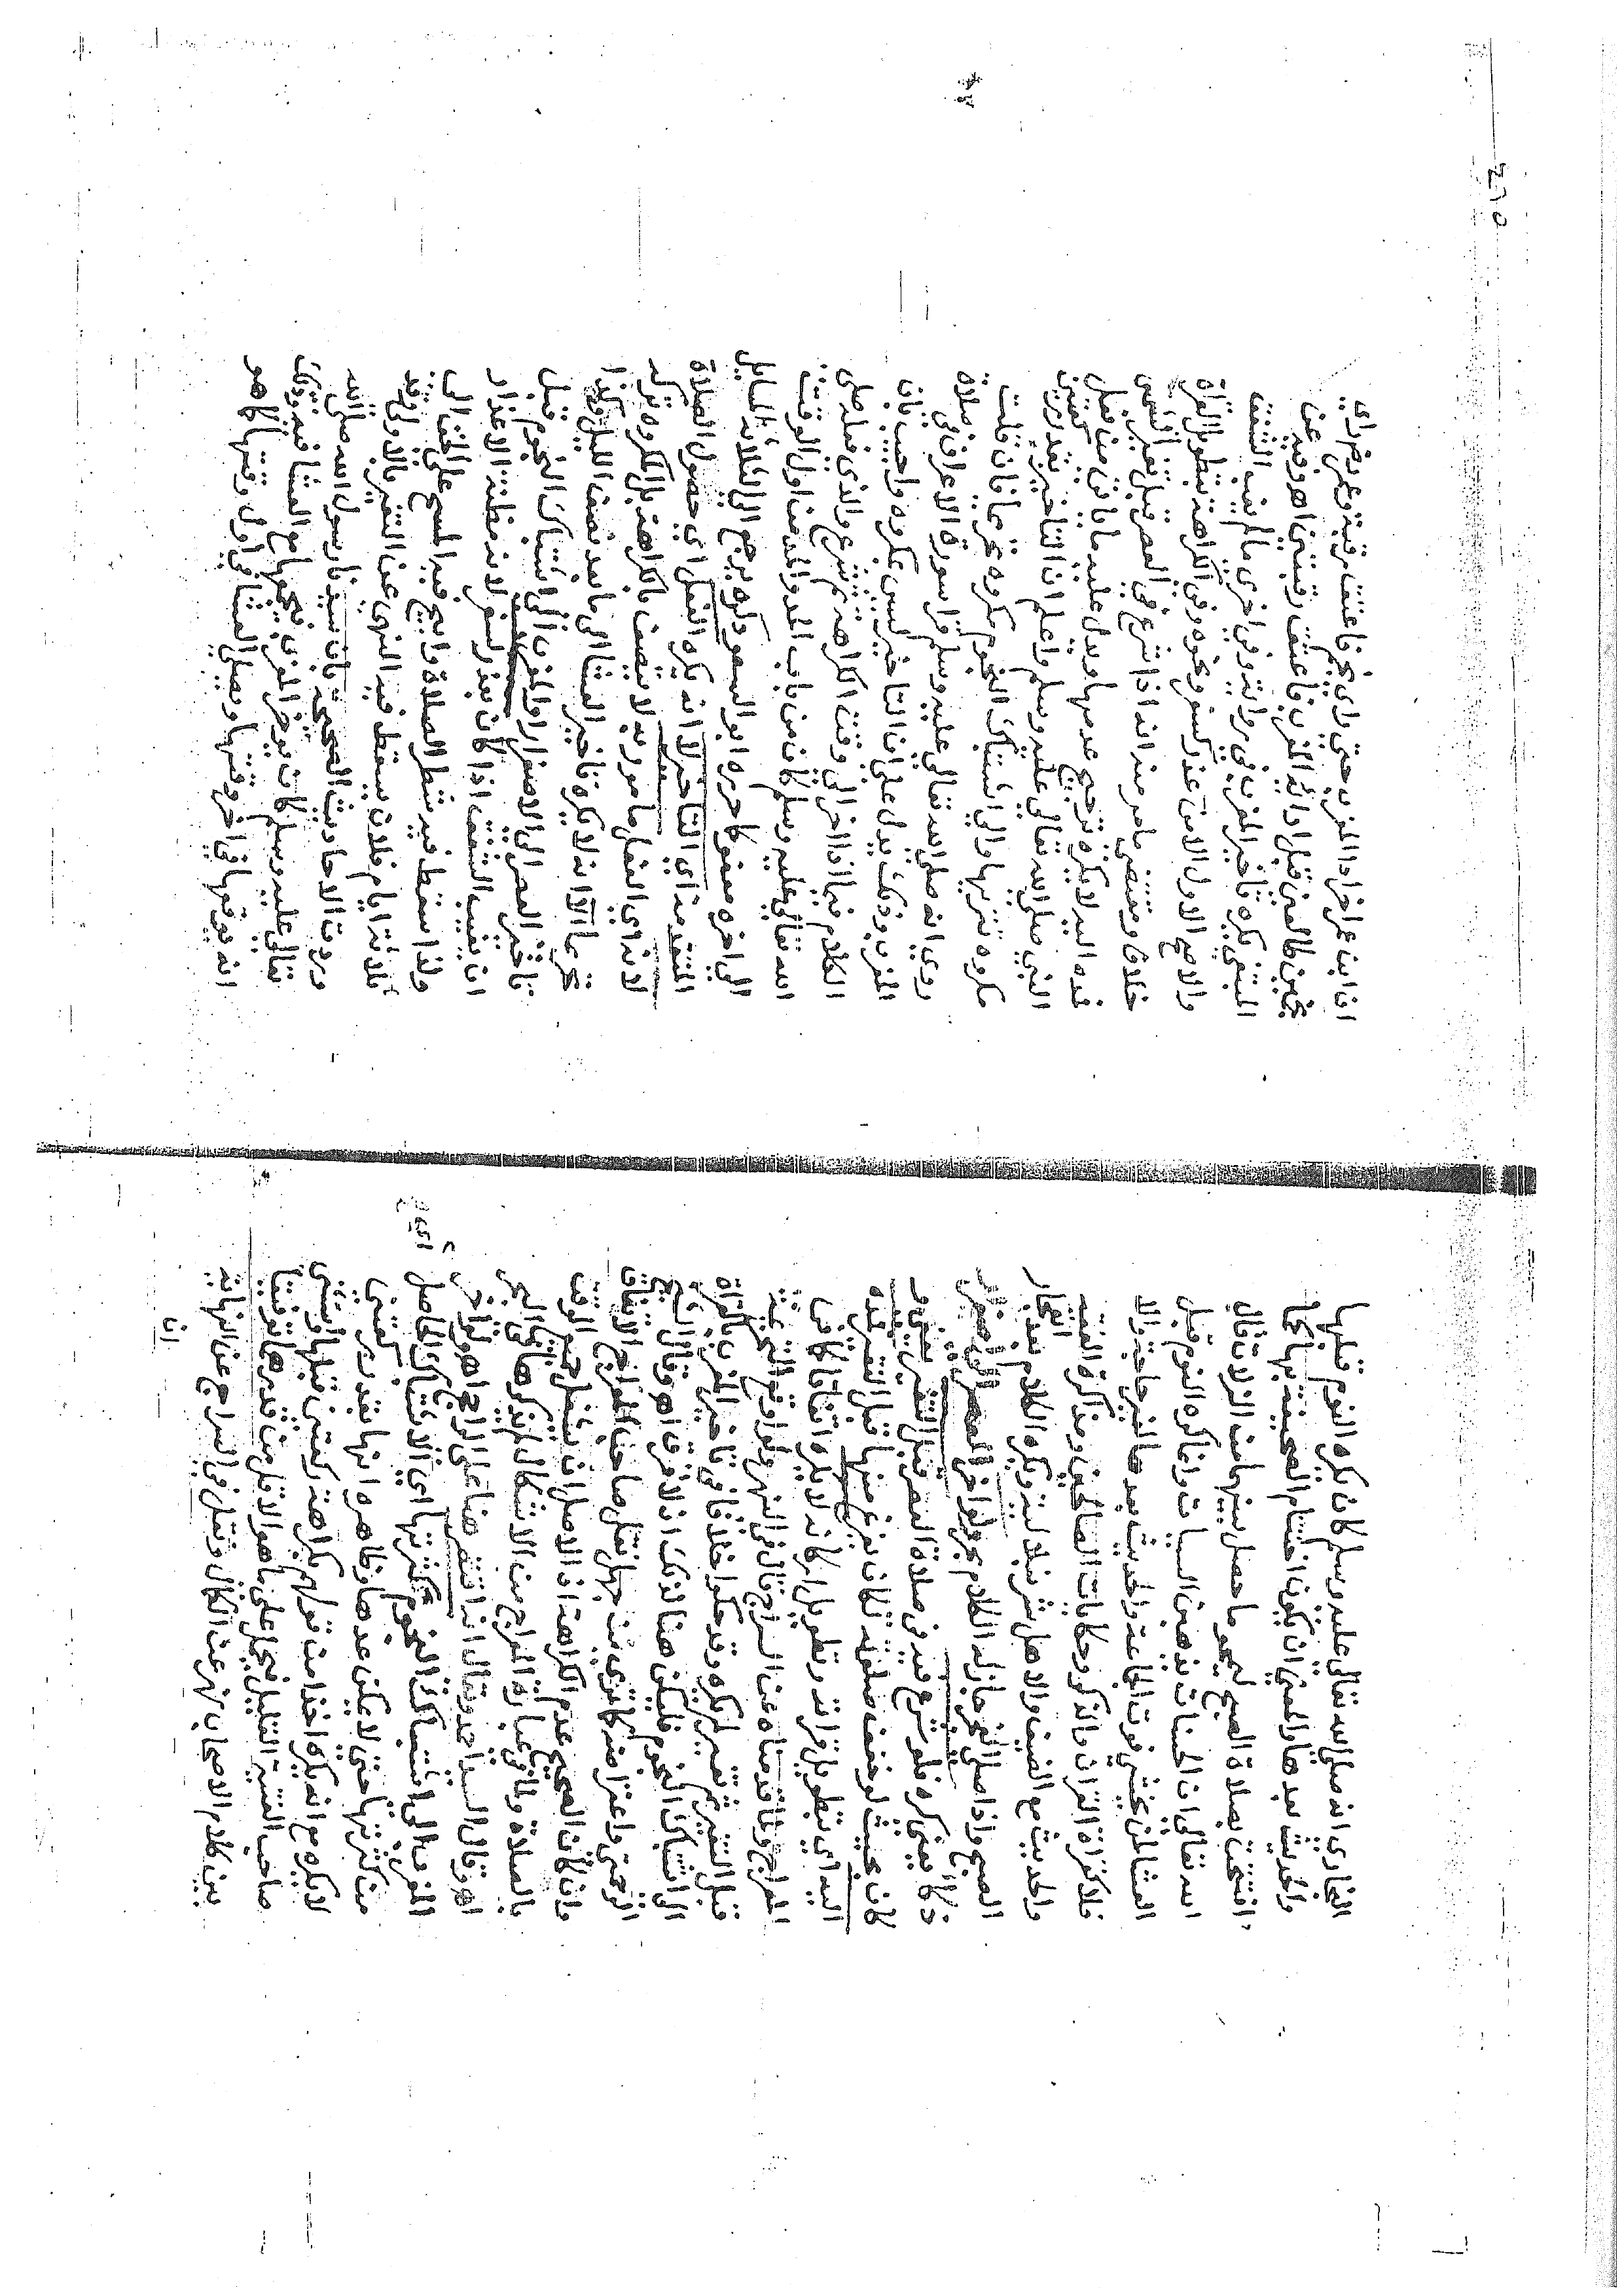 البخارى انه صلى الله تعالى عليه وسلم كان يكره النوم قبلها
والحديث بعدها والمعنى ان يكون اختتام الصحيفة بها كما
افتتحت بصلاة الصبح ليمحو ما حصل بينهما من الزلات قال
الله تعالى ان الحسنات يذهبن السيات وانما كره النوم قبل
العشا لمن يخشى فوت الجماعة والحديث بعدها لغير حاجة والا
فلا كقراة القران والذكر وحكايات الصالحين ومذاكرة الفقه
والحديث مع الضيف والاهل شرنبلالية ويكره الكلام بعد انفجار
الصبح واذا صلى الفجر جاز له الكلام بحر
ذكا يعنى كره فلو شرع فيه فى صلاة العصر قبل التغير فمده
كان بحيث لو خففت صلوته لكان يفرغ منها قبل التغير فمده
اليه اى بتطويل قراته وتطويل اركانه لا يكره اتفاقا كما فى
المعراج ولما قدمناه عن السراج قال فى النهر ولو اوقع التحريمة
قبل التغير ثم تغير لم يكره وقد حكوا خلافا فى تاخير المغرب بالقراة
الى اشتباك النجوم فليكن هنا كذلك اذ لا فرق اهو قال الشيخ
الرحمتى واعترضه كما ترى من جهل نقل صاحب المعراج الاتفاق
وان كان الصحيح عدم الكراهة اذ الاصل ان يشغل جميع الوقت
بالصلاة ولما فى عبارة المعراج من الاشكال لم يذكرها فى البحر
اهو قال السيد احمد وقال انه اقتصر هنا على الراجح اهو لو اخر
المغرب الى اشتباك النجوم كثرتها اى الاشتباك الحاصل
من كثرتها حتى لا يمكن عدها وظاهره انها بقدر ركعتين
لا يكره مع انه يكره اخذا من قولهم بكراهة ركعتين قبلها واستثنى
صاحب القنية القليل فيحمل على ما هو الاقل من قدرهما توفيقا
بين كلام الاصحاب نهر عن الكمال ونقل فى السراج عن النهاية
ان
ان ابن عمر اخر اداء المغرب حتى راى نجما فاعتق رقبة وعن عمر راى
نجمين طالعين قبل ادائه المغرب فاعتق رقبتين اهو فيه عن
المبتغى يكره تاخير المغرب فى رواية وفى اخرى ما لم يغب الشفق
والاصح الاول الا من عذر كسفر ونحوه وفى الكراهة بتطويل القراة
خلاف ومقتضى ما مر منه انه اذا شرع فى العصر قبل تغير الشمس
فمده اليه لا يكره ترجيح عدمها ويدل عليه ما ياتى من فعل
النبى صلى الله تعالى عليه وسلم واعلم ان التاخير بقدر ركعتين
مكروه تنزيها والى اشتباك النجوم مكروه تحريما فان قلت
روى انه صلى الله تعالى عليه وسلم قرا سورة الاعراف فى صلاة
المغرب وذلك يدل على ان التاخير ليس بمكروه واجيب بان
الكلام فيما اذا اخر الى وقت الكراهة ثم شرع والذى فعله صلى
الله تعالى عليه وسلم كان من باب المد والمد من اول الوقت
الى اخره معفو كما حرره ابو السعود وكره يرجع الى الثلاثة المسايل
المتقدمة اى التاخير لا انه يكره الفعل اى حصول الصلاة
لانه اى الفعل مامور به لا يتصف بالكراهة بل المكروه تركه
تحريما الا انه لا يكره تاخير العشا الى ما بعد نصف الليل وكذا
تاخير العصر الى الاصفرار والمغرب الى اشتباك النجوم قبل
ان يغيب الشفق اذا كان بعذر السفر لانه مظنة الاعذار
ولذا اسقط فيه شطر الصلاة وابيح فيه المسح على الخف الى
ثلاثة ايام فلان يسقط فيه النهى عن التغير بالاولى وقد
وردت الاحاديث الصحيحة بان سيدنا رسول الله صلى الله
تعالى عليه وسلم كان يوخر المغرب فيجمعها مع العشا فيه وذلك
انه يوقعها فى اخر وقتها ويصلى العشا فى اول وقتها كما هو